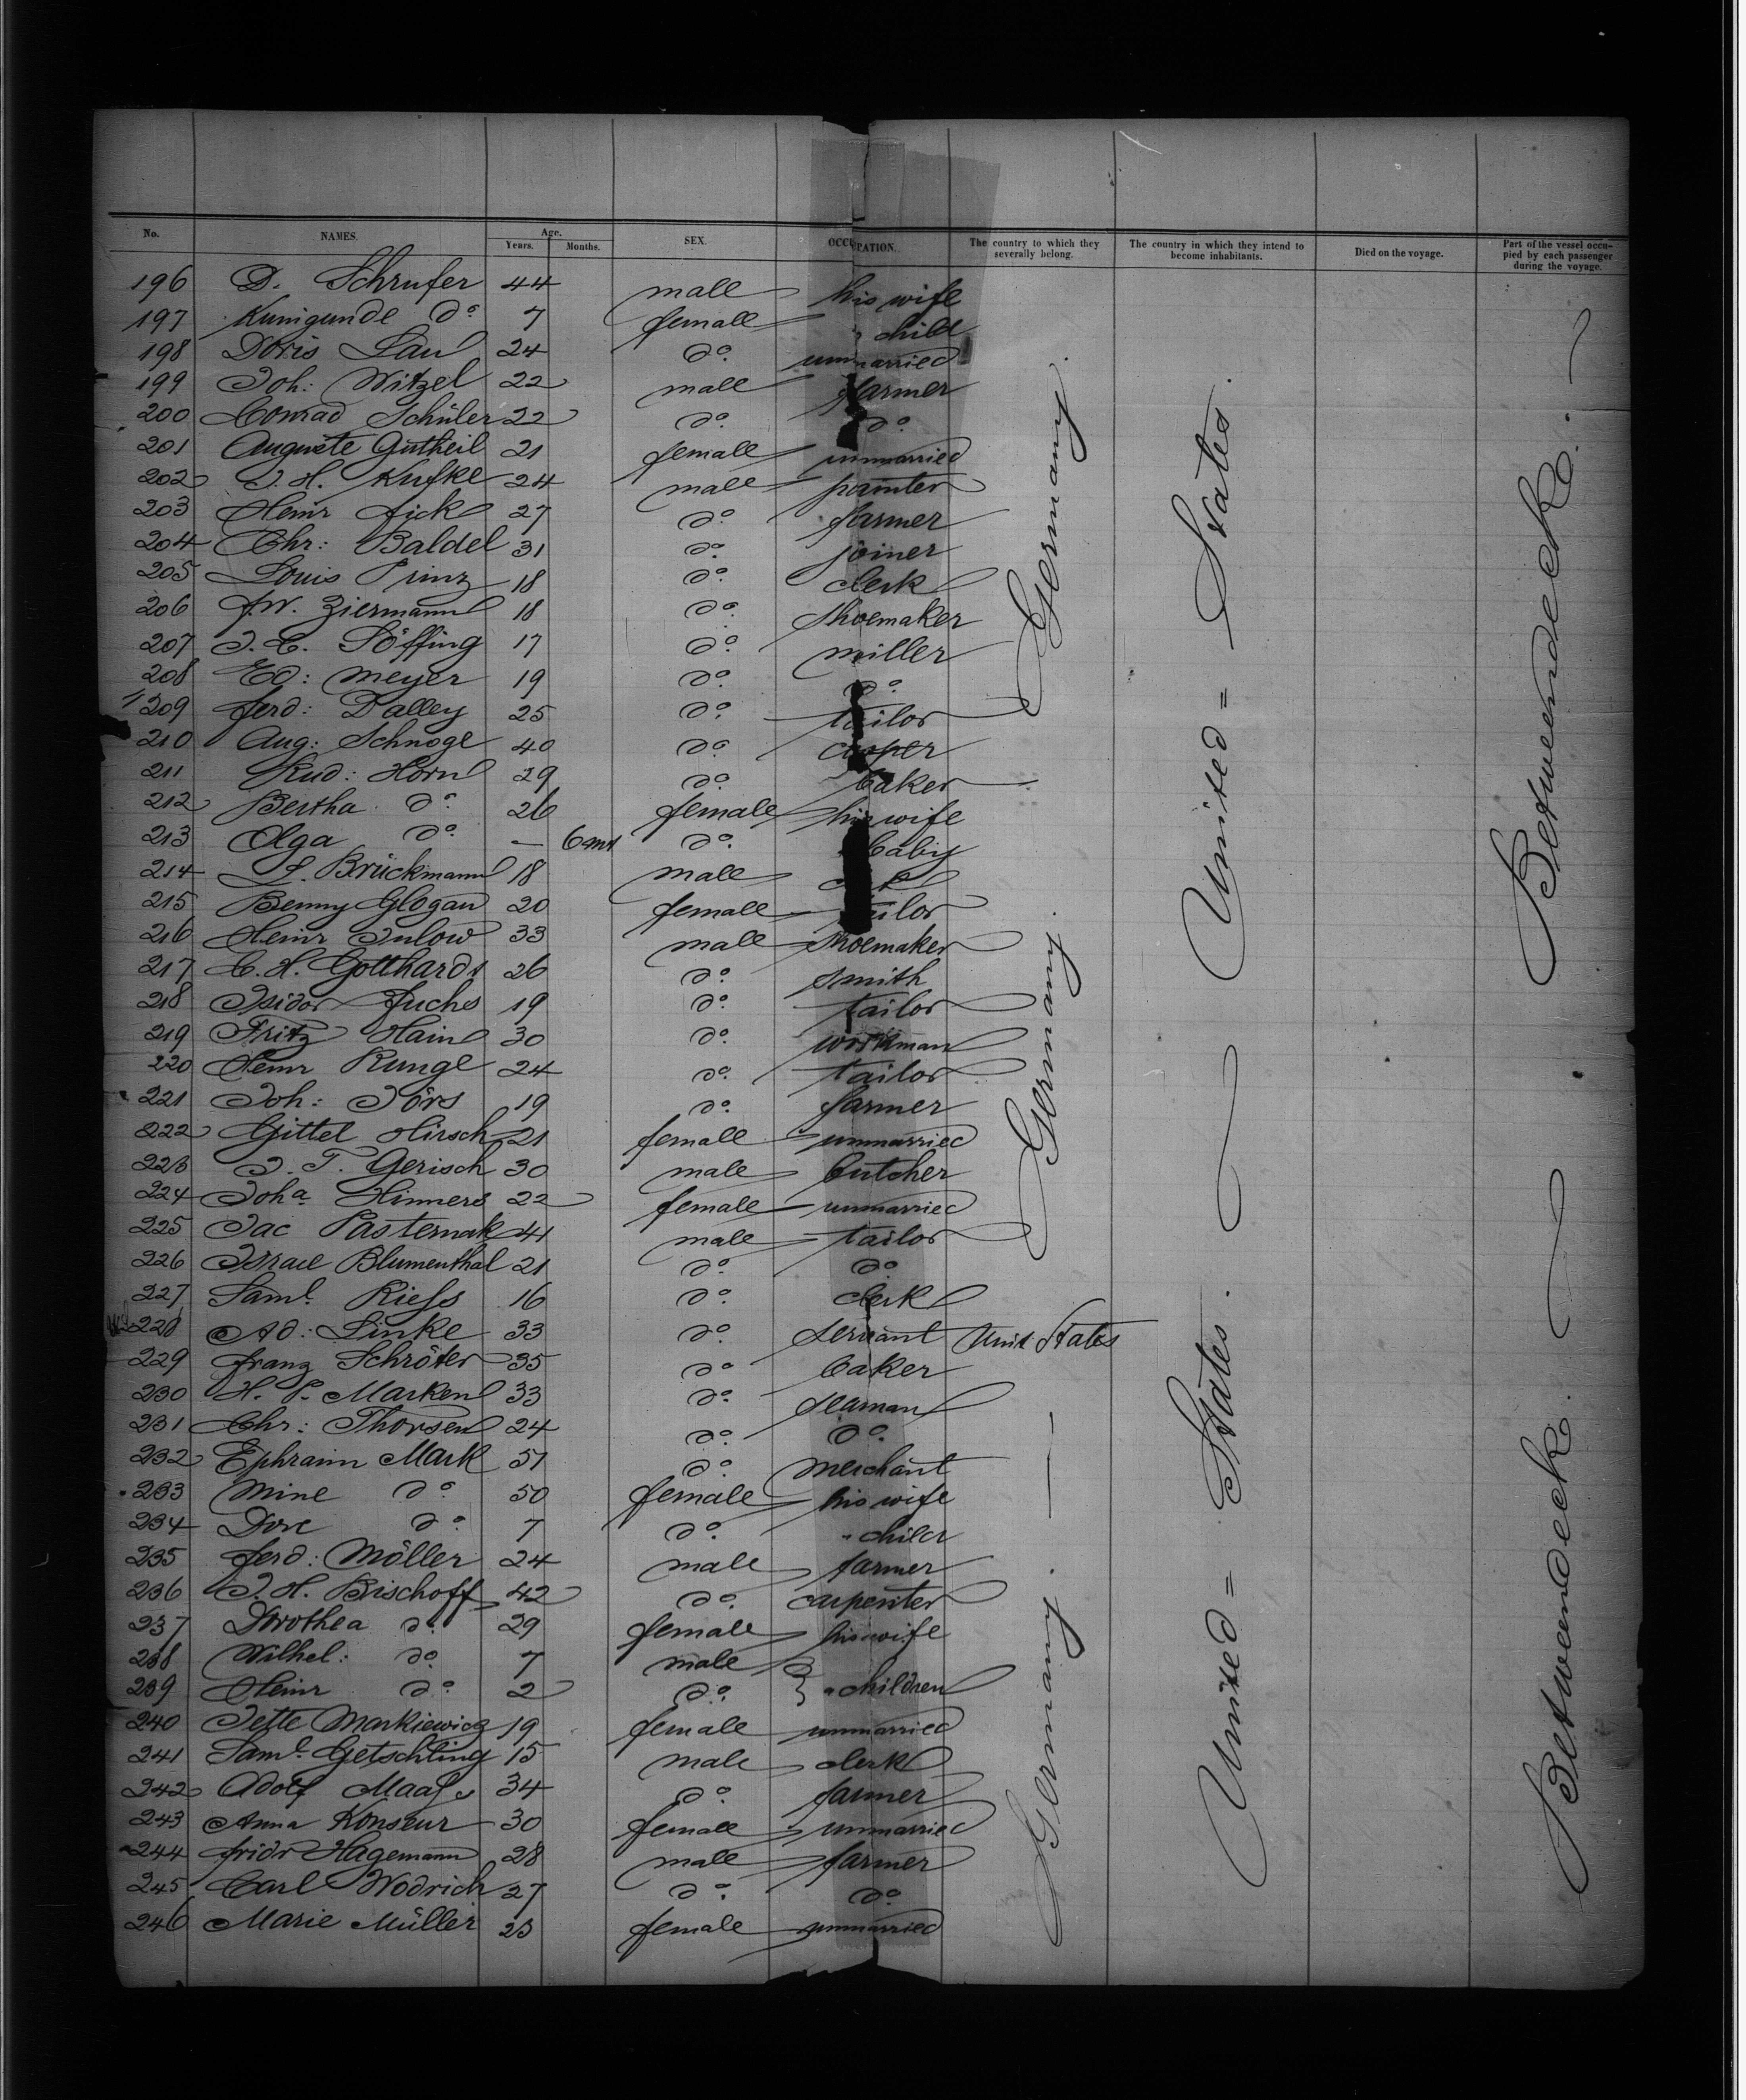 No. NAMES. Age. Years. Months. SEX. OCCUPATION. The country to which they severally belong. The country in which they intend to become inhabitants. Died on the voyage. Part of the vessel occupied by each passenger during the voyage.
196 D. Schrufer 44 male his wife
197 Kunigunde do. 7 female " child
198 Doris Lau 24 do. unmarried
199 Joh: Witzel 22 male farmer
200 Conrad Schüler 22 do. do.
201 Auguste Gutheil 21 female unmarried
202 J. H. Kufke 24 male painter
203 Heinr Fick 27 do. farmer
204 Chr: Baldel 31 do. joiner
205 Louis Prinz 18 do. clerk
206 F. W. Ziermann 18 do. shoemaker
207 J. C. Söffing 17 do. miller
208 Ed: Meyer 19 do. do.
209 Ferd: Dalley 25 do. tailor
210 Aug: Schnoge 40 do. cooper
211 Rud: Horn 29 do. baker
212 Bertha do. 26 female his wife
213 Olga do. — 6 mt do. baby
214 L. Brückmann 18 male
215 Benny Glogau 20 female tailor
216 Heinr Inlow 33 male shoemaker
217 C. H. Gotthardt 26 do. smith
218 Isidor Fuchs 19 do. tailor
219 Fritz Hain 30 do. workman
220 Heinr Runge 24 do. tailor
221 Joh: Jörs 19 do. farmer
222 Gittel Hirsch 21 female unmarried
223 J. T. Gerisch 30 male butcher
224 Joha Hinners 22 female unmarried
225 Jac Pasternak 41 male tailor
226 Israel Blumenthal 21 do. do.
227 Saml. Riess 16 do. clerk
228 Ad: Linke 33 do. servant Unit States
229 Franz Schröter 35 do. baker
230 H. P. Marken 33 do. seaman
231 Chr: Thorsen 24 do. do.
232 Ephraim Mark 51 do. merchant
233 Mine do. 50 female his wife
234 Dore do. 7 do. " child
235 Ferd: Möller 24 male farmer
236 J. H. Bischoff 42 do. carpenter
237 Dorothea do. 29 female his wife
238 Wilhel: do. 7 male
239 Heinr do. 2 do. } " children
240 Jette Markiewicz 19 female unmarried
241 Saml. Getschling 15 male clerk
242 Adolf Maass 34 do. farmer
243 Anna Konseur 30 female unmarried
244 Fridr Hagemann 28 male farmer
245 Carl Wodrich 27 do. do.
246 Marie Müller 23 female unmarried
Germany.
Germany.
Germany.
United = States.
United = States.
Betweendeck.
Betweendeck.